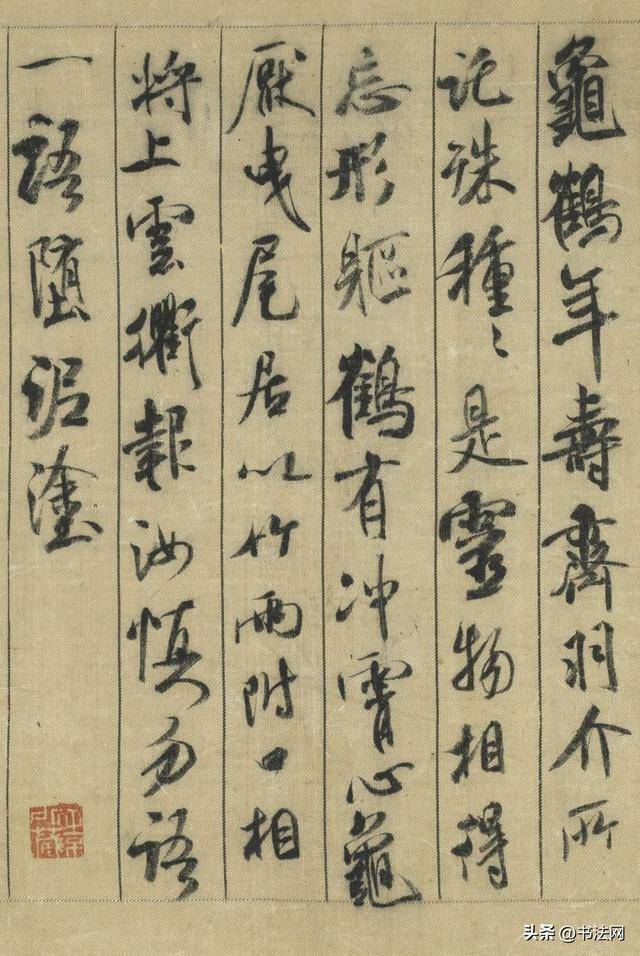 龜鶴年壽齊羽介所
託殊種〻是靈物相得
忘形軀鶴有冲霄心龜
厭曳尾居以竹兩附口相
將上雲衢報汝慎勿語
一語墮泥塗
头条 @书法网